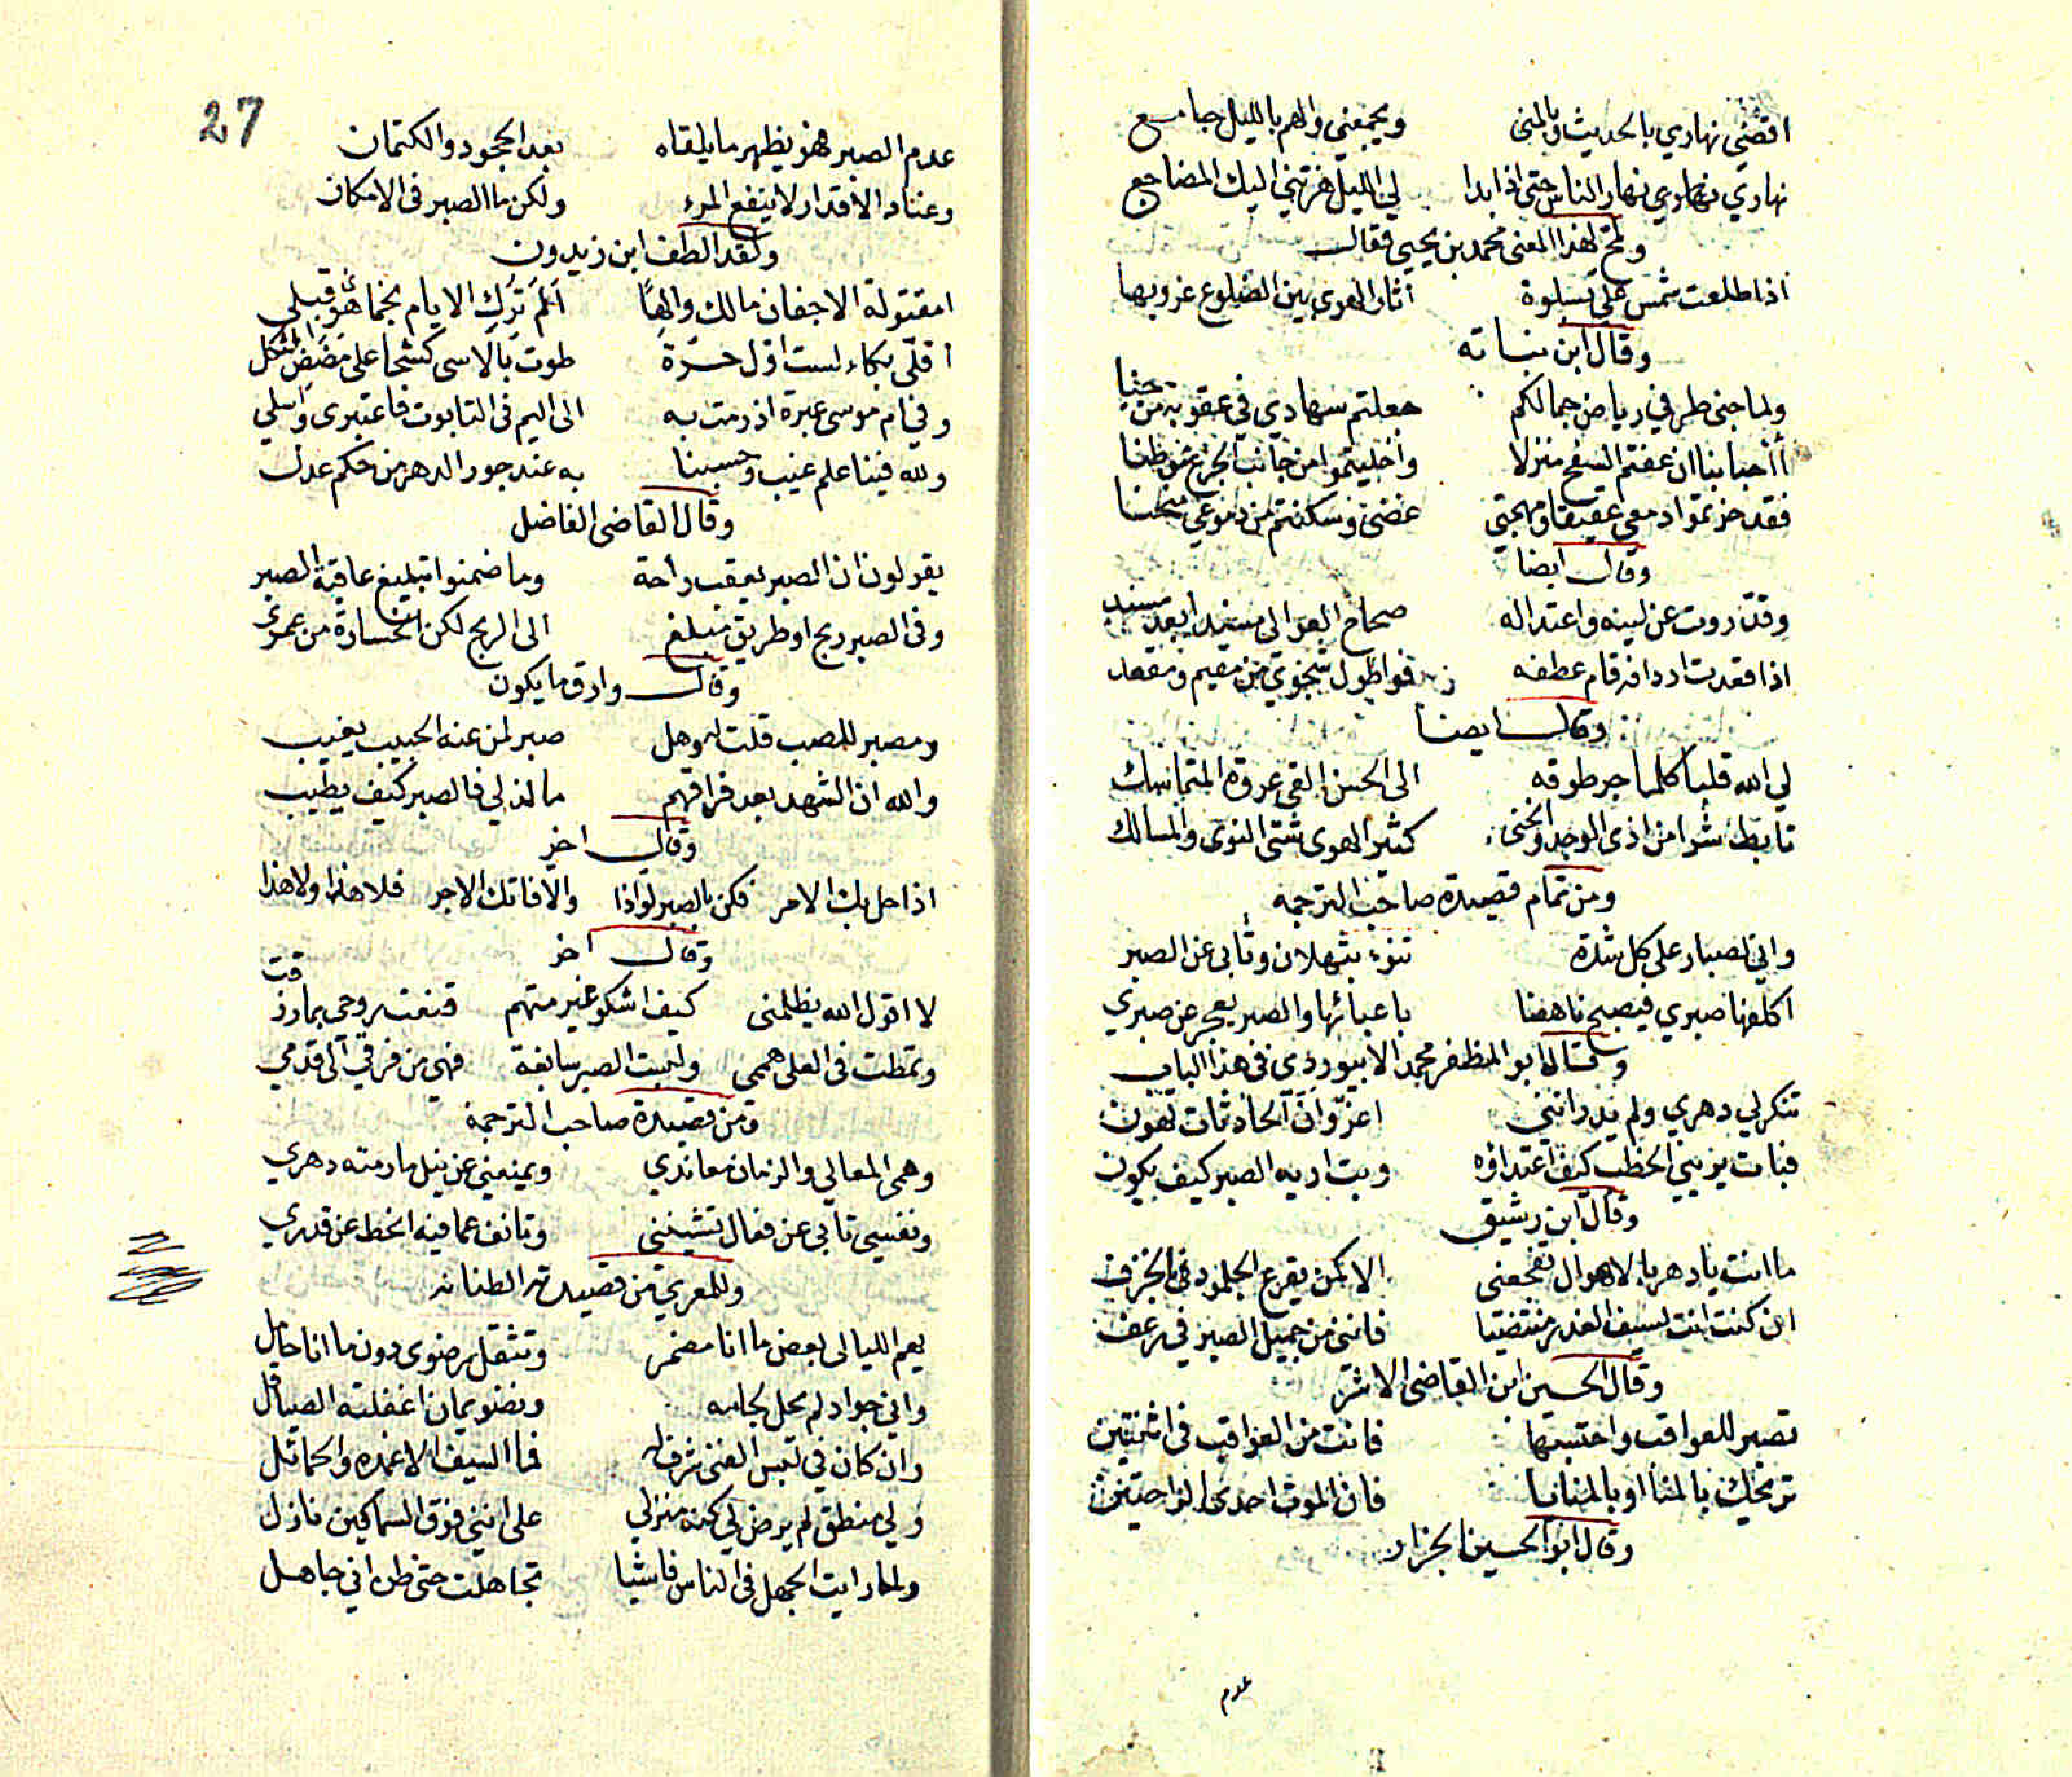 اقضي نهاري بالحديث وبالمنى ويجمعني والهم بالليل جامع
نهاري نهاري نهار الناس حتى اذا بدا لي الليل هزتني اليك المضاجع
ولمح لهذا المعنى محمد بن يحيى فقال
اذا طلعت شمس علي بسلوة اثار الهوى بين الضلوع غروبها
وقال ابن نباته
ولما جنى طرفي رياض جمالكم جعلتم سهادي في عقوبة من جنيا
أأحبابنا ان عفتم السفح منزلا واخليتموا من جانب الجزع موطنا
فقد حزتموا دمعي عقيقا ومهجتي غضى وسكنتم من ضلوعي منحنا
وقال ايضا
وقد روت عن لينه واعتداله صحاح العوالي مسندا بعد مسند
اذا قعدت اردافه قام عطفه فواطول شجوي من مقيم ومقعد
وقال ايضا
لي الله قلبا كلما جر طوقه الى الحسن القى عروة المتماسك
تأبط شرا من اذى الوجد وانحنى كثير الهوى شتى النوى والمسالك
ومن تمام قصيدة صاحب الترجمه
واني لصبار على كل شدة تنوء بثهلان وتأبى عن الصبر
اكلفها صبري فيصبح ناهضا باعبائها والصبر يعجز عن صبري
وقال ابو المظفر محمد الابيوردى فى هذا الباب
تنكر لي دهري ولم يدر انني اعز وان الحادثات تهون
فبات يريني الخطب كيف اعتداؤه وبت اريه الصبر كيف يكون
وقال ابن رشيق
ما انت يا دهر بالاهوال تفجعنى الا كمن يقرع الجلمود فى الخزف
ان كنت انت لسيف الغدر منتضيا فانني من جميل الصبر في زغف
وقال الحسين ابن القاضى الاشتر
تصبر للعواقب واحتسبها فانت من العواقب فى اثنتين
تريحك بالمنا او بالمنايا فان الموت احدى الراحتين
وقال ابو الحسين الجزار
عدم
27
عدم الصبر فهو يظهر ما يلقاه بعد الجحود والكتمان
وعناد الاقدار لا ينفع المرء ولكن ما الصبر فى الامكان
ولقد الطف ابن زيدون
امقتولة الاجفان مالك والها الم ترك الايام نجما هوى قبلي
اقلّي بكاء لست اول حرة طوت بالاسى كشحا على مضض الثكل
وفي ام موسى عبرة اذ رمت به الى اليم فى التابوت فاعتبرى واسلي
ولله فينا علم غيب وحسبنا به عند جور الدهر من حكم عدل
وقال القاضى الفاضل
يقولون ان الصبر يعقب راحة وما ضمنوا تبليغ عاقبة الصبر
وفى الصبر ربح او طريق مبلغ الى الربح لكن الخسارة من عمرى
وقال وارق ما يكون
ومصبر للصب قلت له وهل صبر لمن عنه الحبيب يغيب
والله ان الشهد بعد فراقهم ما لذ لي فالصبر كيف يطيب
وقال اخر
اذا حل بك الامر فكن بالصبر لواذا والا فاتك الاجر فلا هذا ولا هذا
وقال اخر
لا اقول الله يظلمنى كيف اشكو غير متهم قنعت روحى بما رزقت
وتمطت فى العلى هممى ولبست الصبر سابغة فهي من فرقي الى قدمي
ومن قصيدة صاحب الترجمة
وهمى المعالي والزمان معاندي ويمنعني عن نيل ما رمته دهري
ونفسي تأبى عن فعال تشينني وتانف عما فيه الحط عن قدري
وللمعري من قصيدته الطنانه
يهم الليالى بعض ما انا مضمر وتثقل رضوى دون ما انا حامل
واني جواد لم يحل لجامه ونضو يمان اغفلته الصياقل
وان كان في لبس الفتى شرف له فما السيف الا غمده والحمائل
ولي منطق لم يرض لي كنه منزلي على انني فوق السماكين نازل
ولما رايت الجهل فى الناس فاشيا تجاهلت حتى ظن اني جاهل